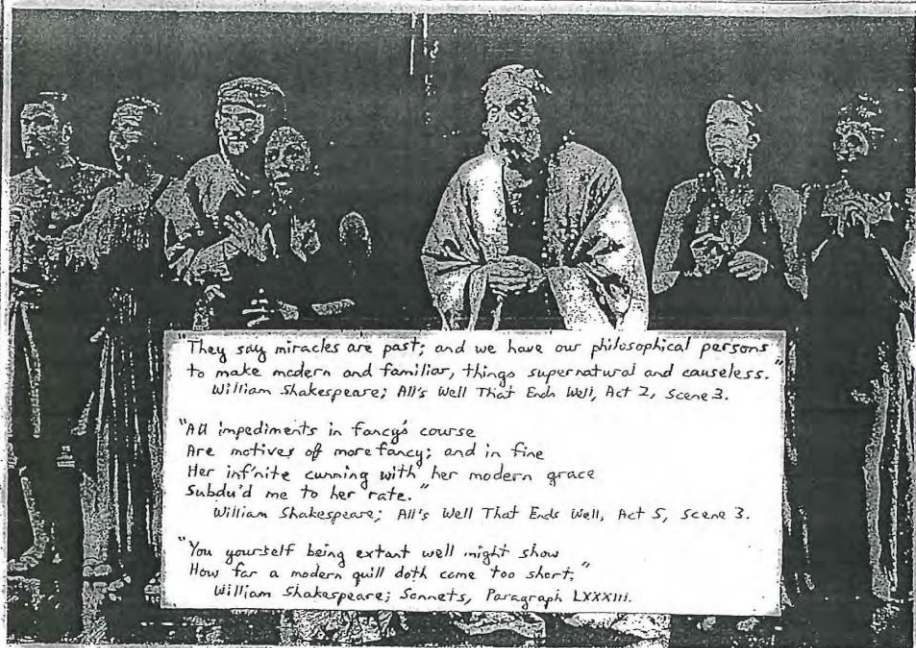 "They say miracles are past; and we have our philosophical persons
to make modern and familiar, things supernatural and causeless."
William Shakespeare; All's Well That Ends Well, Act 2, Scene 3.
"All impediments in fancy's course
Are motives of more fancy; and in fine
Her inf'nite cunning with her modern grace
Subdu'd me to her rate."
William Shakespeare; All's Well That Ends Well, Act 5, Scene 3.
"You yourself being extant well might show
How far a modern quill doth come too short."
William Shakespeare; Sonnets, Paragraph LXXXIII.